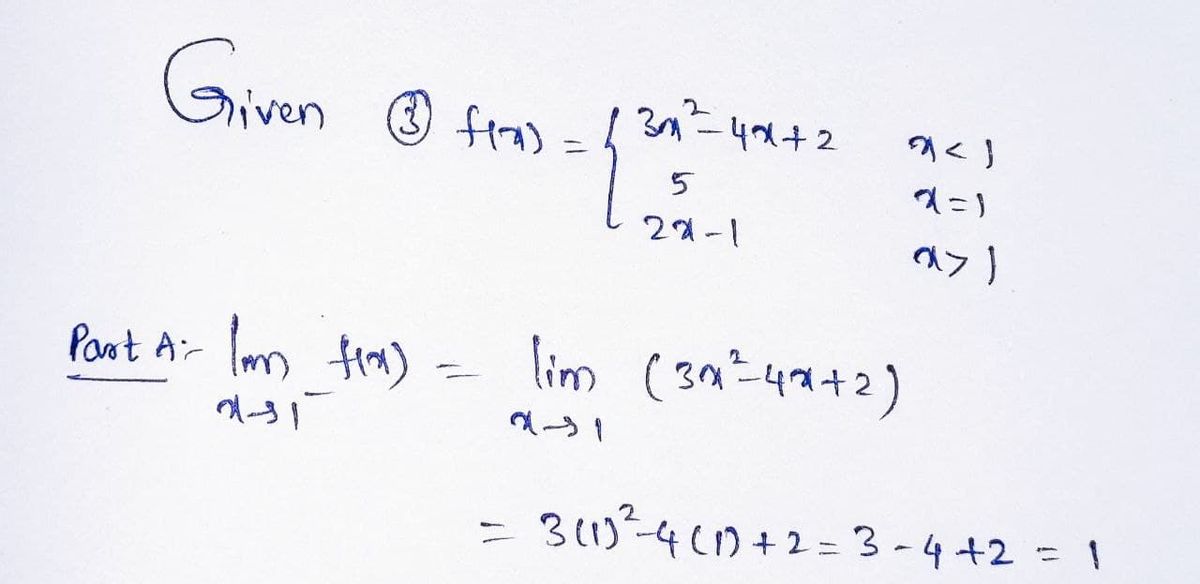 Given ③ f(x) = { 3x² - 4x + 2 x < 1
5 x = 1
2x - 1 x > 1
Part A:- lim x→1⁻ f(x) = lim x→1 (3x² - 4x + 2)
= 3(1)² - 4(1) + 2 = 3 - 4 + 2 = 1